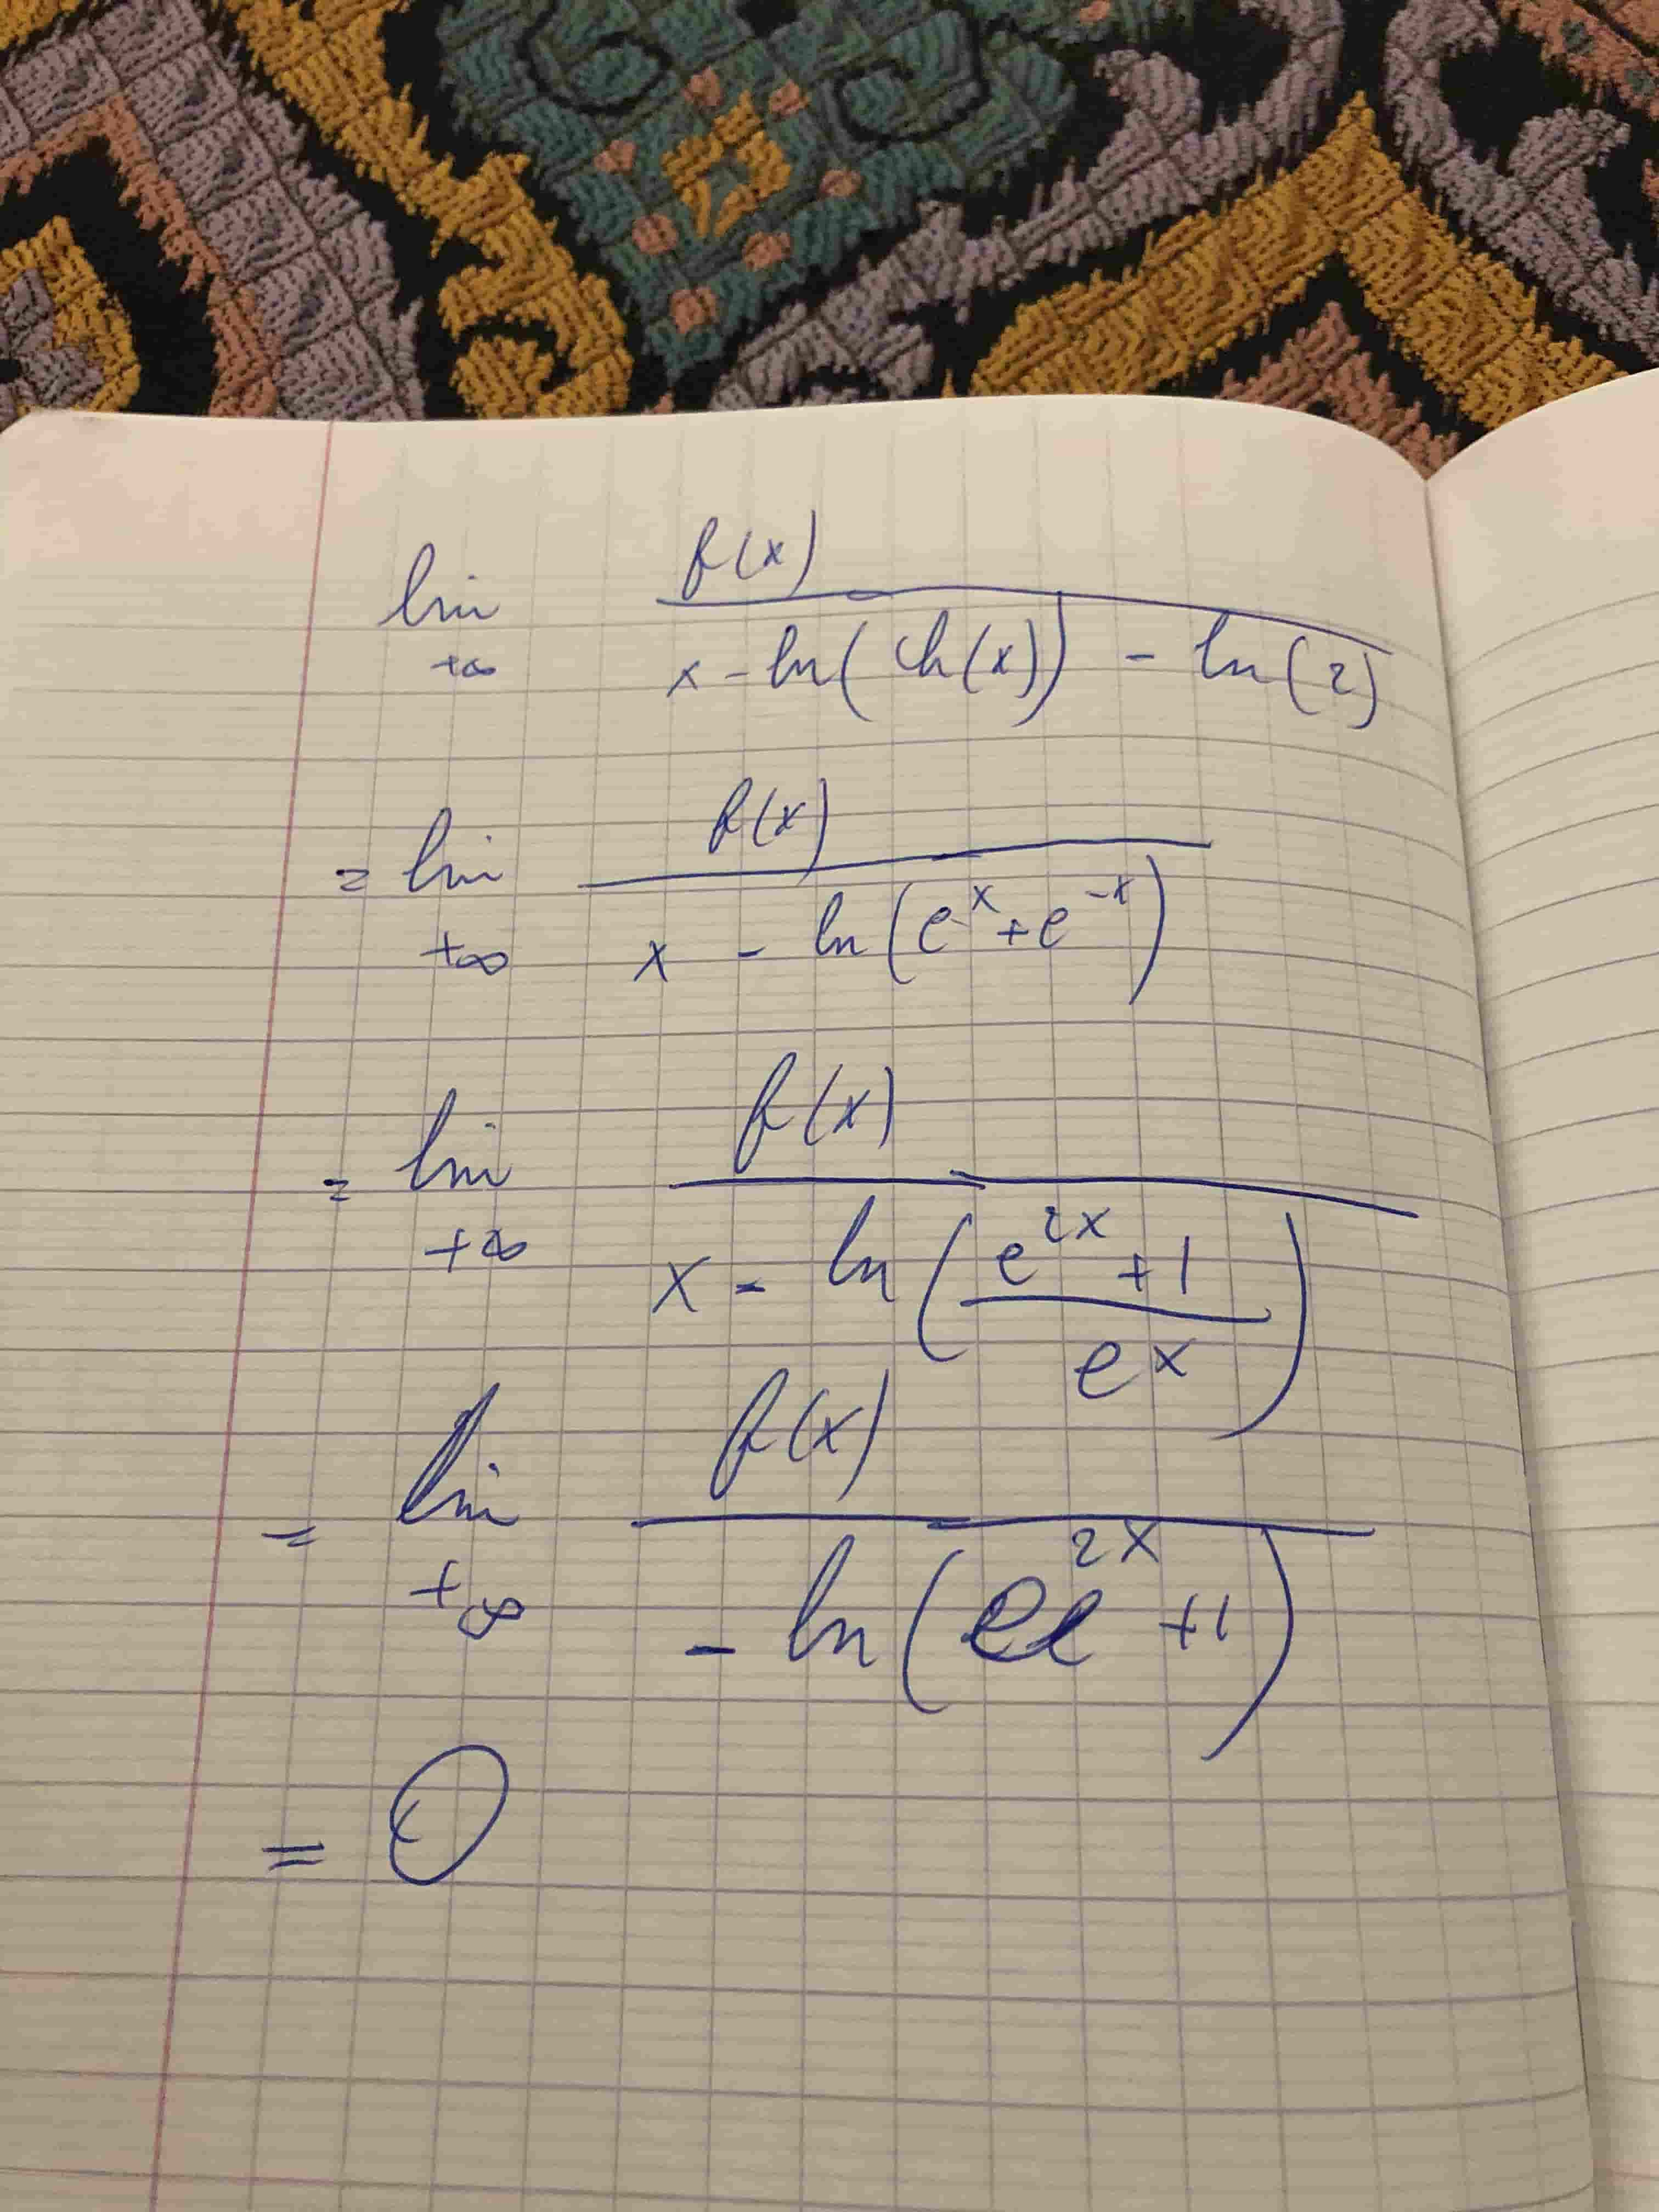 lim +∞ f(x) / (x - ln(ch(x)) - ln(2))
= lim +∞ f(x) / (x - ln(e^x + e^-x))
= lim +∞ f(x) / (x - ln((e^2x + 1) / e^x))
= lim +∞ f(x) / (- ln(e^2x + 1))
= 0